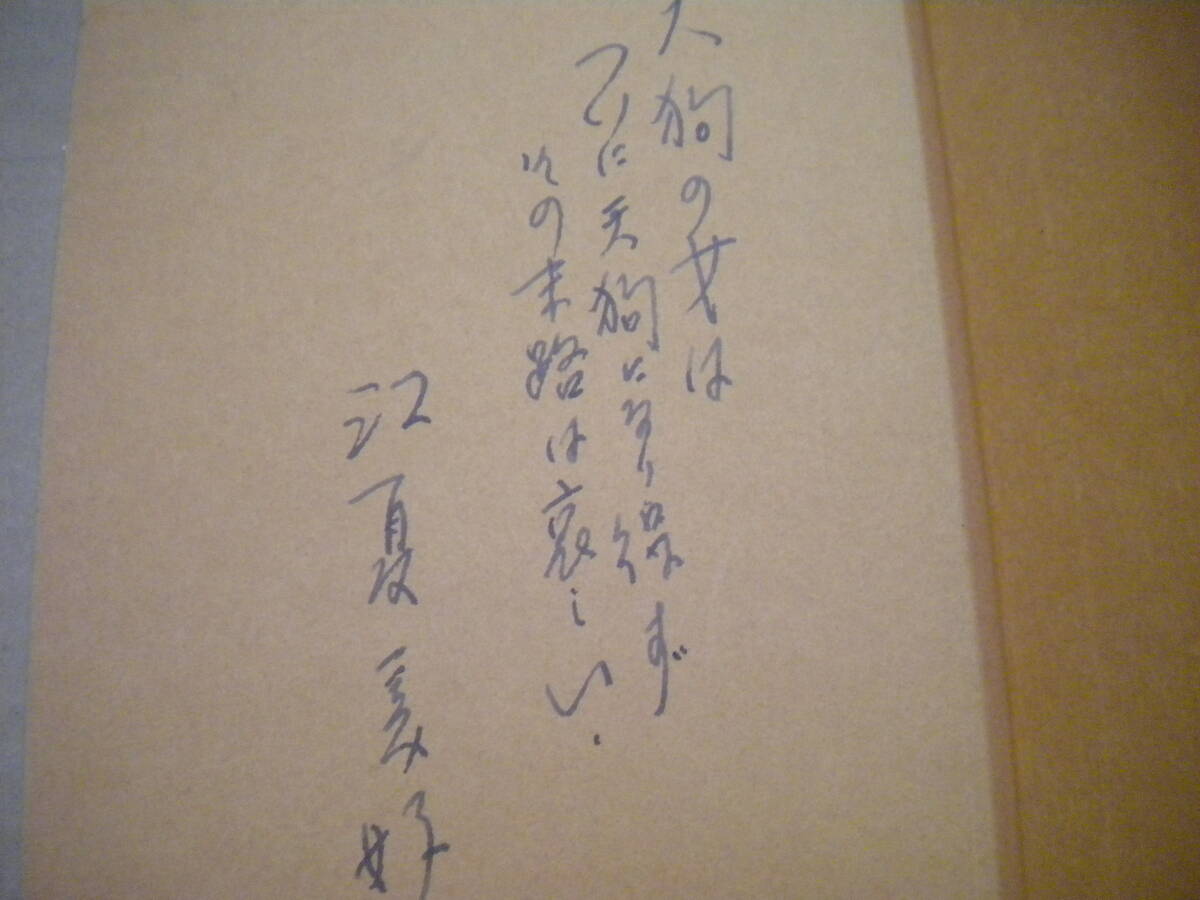 天狗の女は
ついに天狗になり得ず
その末路は哀しい.
江夏美好